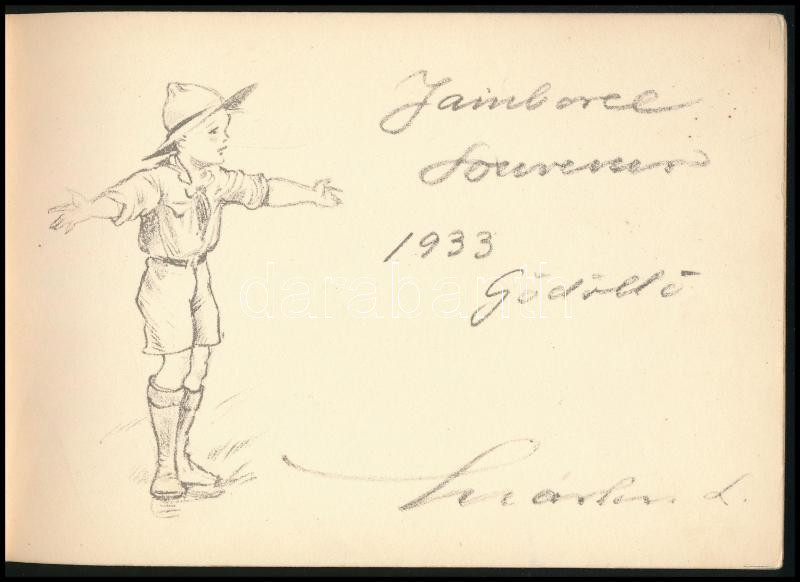 Jamboree
Souvenir
1933
Gödöllő
Márton L.
darabanth